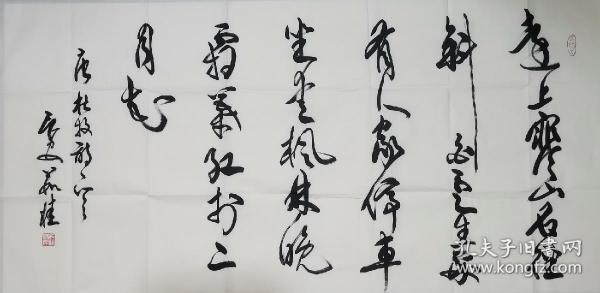 远上寒山石径
斜 白云生处
有人家停车
坐爱枫林晚
霜叶红于二
月花
唐杜牧诗一首
孔夫子旧书网
www.kongfz.com